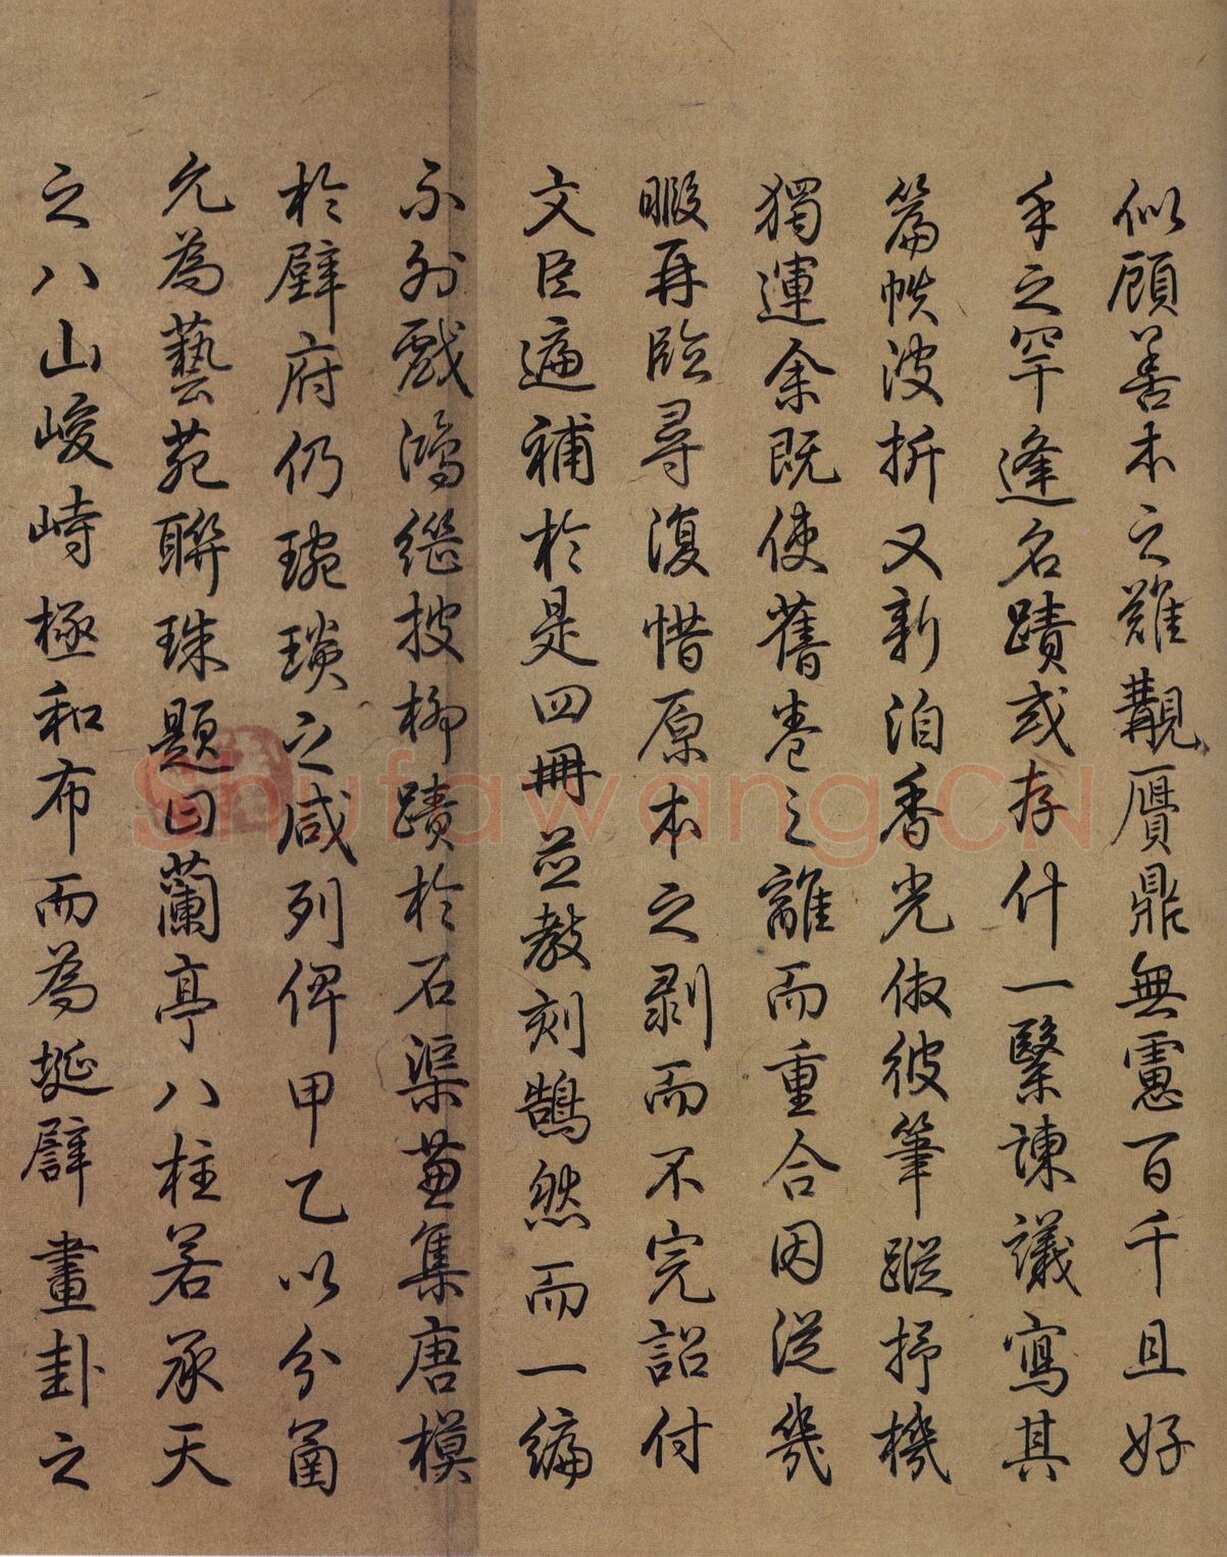 似顧善本之難覯贋鼎無慮百千且好
手之罕逢名蹟或存什一繄諫議寫其
篇帙波折又新洎香光倣彼筆蹤抒機
獨運余既使舊卷之離而重合因從幾
暇再臨尋復惜原本之剥而不完詔付
文臣遍補於是四冊並教刻鵠然而一編
不外戲鴻繼披柳蹟於石渠兼集唐模
於壁府仍琬琰之咸列俾甲乙以分函
允為藝苑聯珠題曰蘭亭八柱若承天
之八山峻峙極和布而為埏譬畫卦之
Shufawang.CN